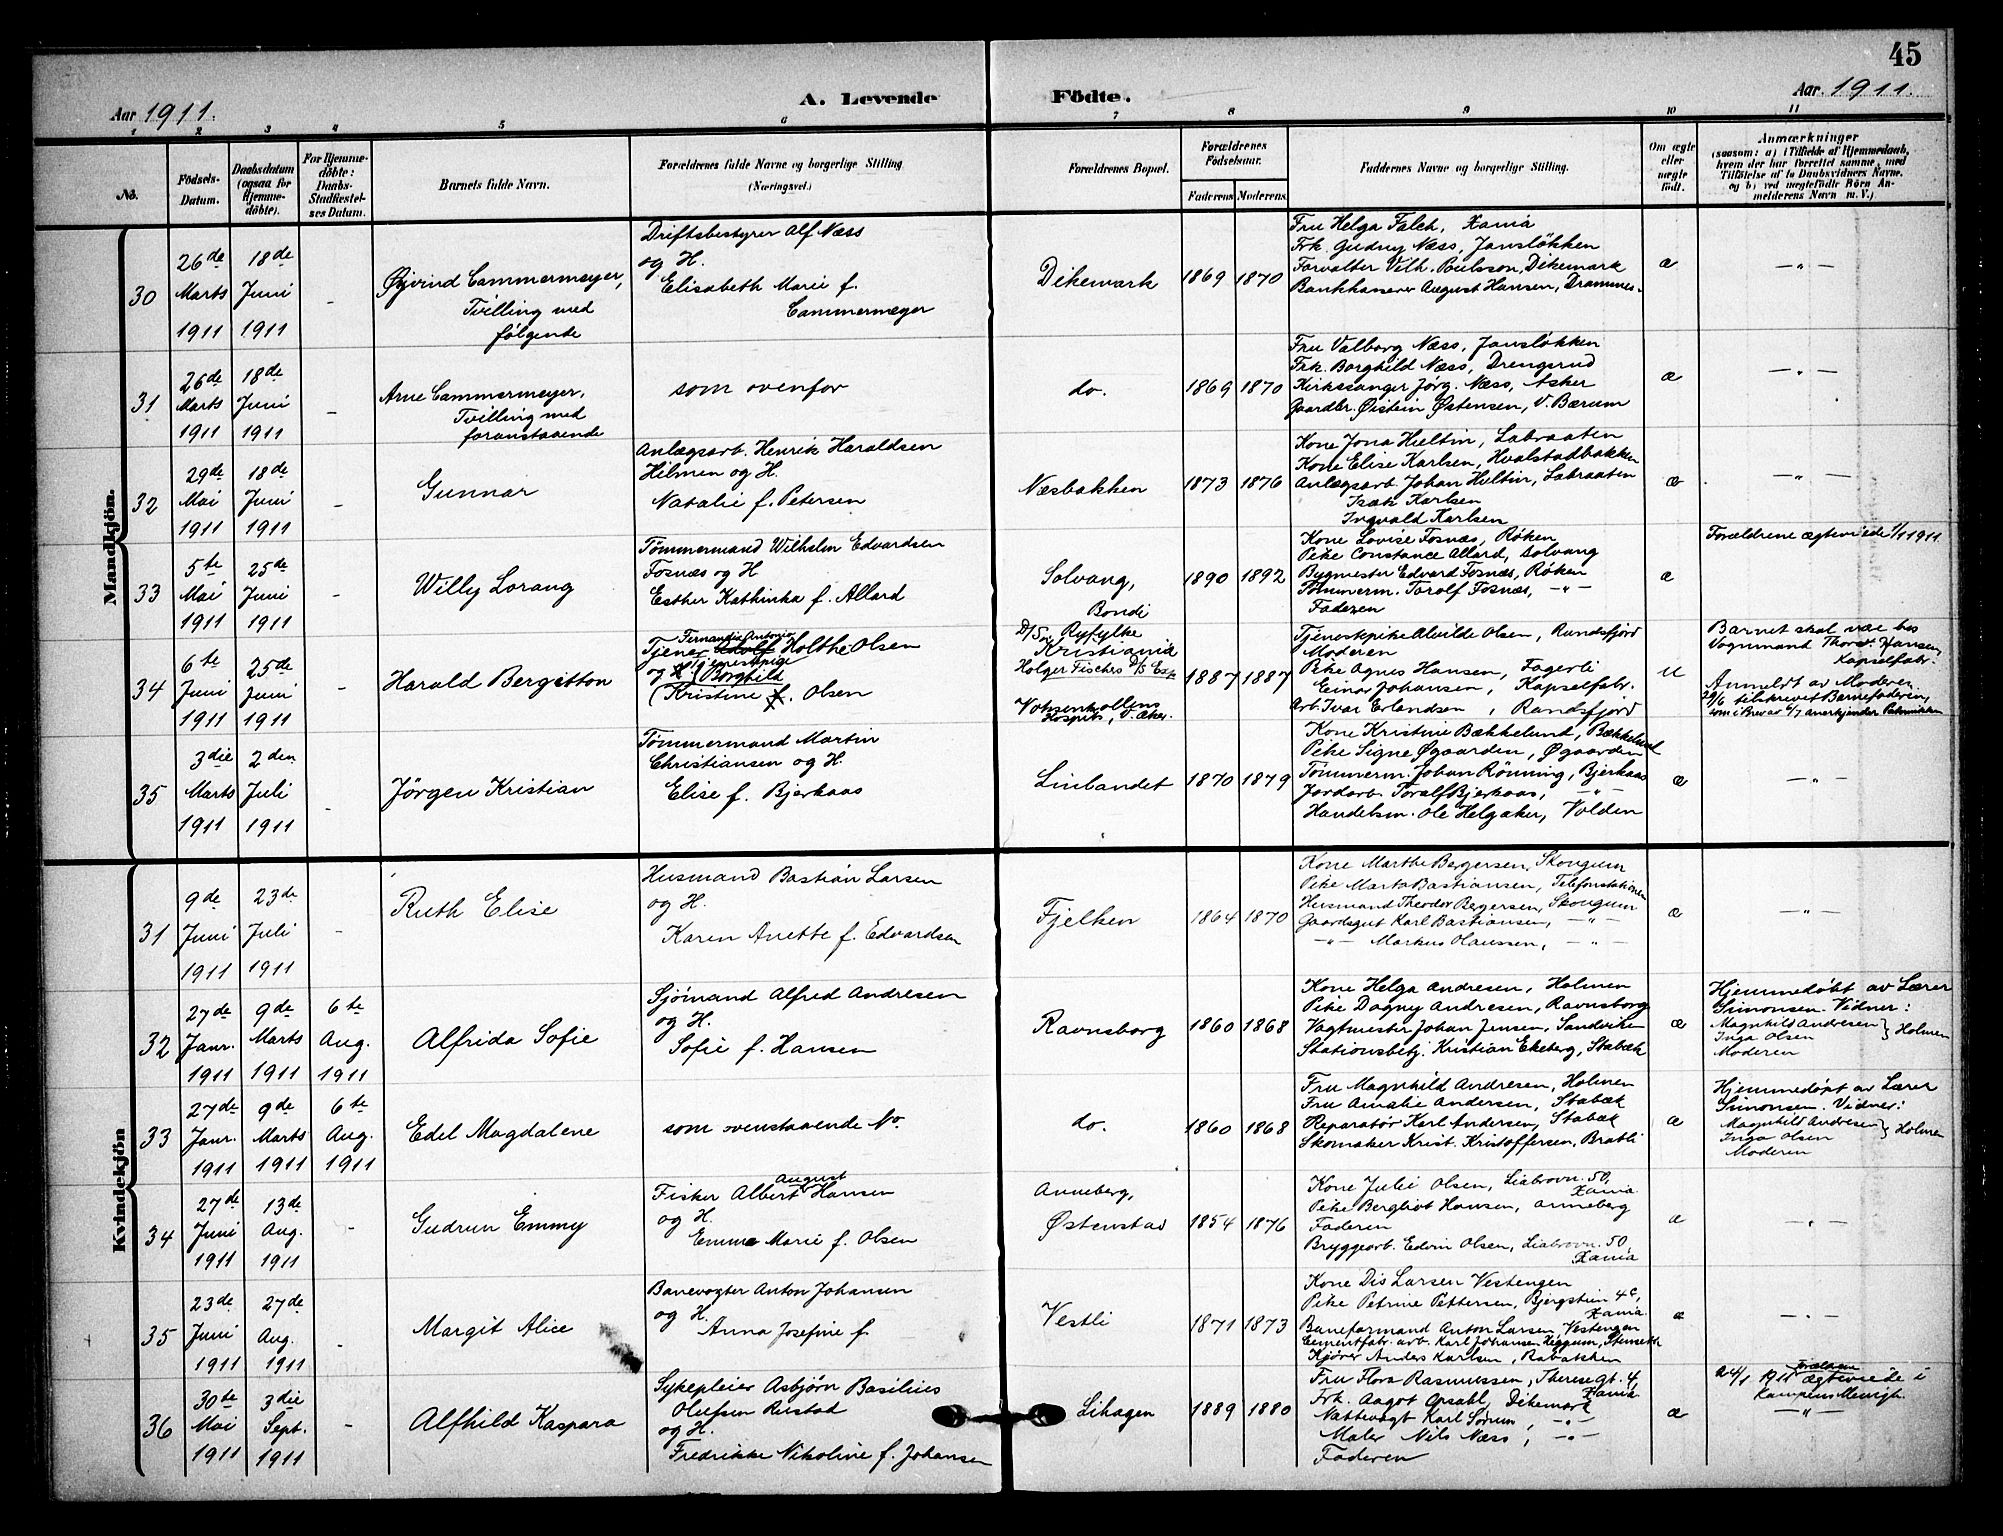 45
Aar 1911.
A. Levende Födte.
Aar 1911.
1 2 3 4 5 6 7 8 9 10 11
No.
Födsels-Datum.
Daabsdatum (ogsaa for Hjemme-döbte).
For Hjemme-döbte: Daabs-Stadfæstel-ses Datum.
Barnets fulde Navn.
Forældrenes fulde Navne og borgerlige Stilling
(Næringsvei.)
Forældrenes Bopæl.
Forældrenes Födselsaar.
Faderens Moderens
Faddernes Navne og borgerlige Stilling.
Om ægte eller uægte födt.
Anmærkninger
(saasom: a) i Tilfælde af Hjemmedaab,
hvem der har forrettet samme, med
Tilföielse af to Daabsvidners Navne,
og b) ved uægtefödte Börn An-
melderens Navn m. V.)
Mandkjön.
30
26de Marts 1911
18de Juni 1911
-
Øyvind Cammermeyer,
Tvilling med
følgende
Driftsbestyrer Alf Næss
og H.
Elisabeth Marie f.
Cammermeyer
Dikemark
1869 1870
Fru Helga Falch, Xania
Frk. Gudny Næss, Jansløkken
Forvalter Vilh. Poulsson, Dikemark
August Hansen, Drammen.
æ
-"-
31
26de Marts 1911
18de Juni 1911
-
Arne Cammermeyer,
Tvilling med
foranstaaende
som ovenfor
do.
1869 1870
Fru Valborg Næss, Jansløkken
Frk. Borghild Næss, Drengsrud
Kirkesanger Jørg. Næss, Asker
Gaardbr. Øistein Østensen, V. Bærum
æ
-"-
32
29de Mai 1911
18de Juni 1911
-
Gunnar
Anlægsarb. Henrik Haraldsen
Hilmen og H.
Natalie f. Petersen
Næsbakken
1873 1876
Kone Jona Hultin, Labraaten
Kone Elise Karlsen, Hvalstadbakken
Anlægsarb. Johan Hultin, Labraaten
Isak Karlsen
Ingvald Karlsen
æ
-"-
33
5te Mai 1911
25de Juni 1911
-
Willy Lorang
Tømmermand Wilhelm Edvardsen
Fosnæs og H
Esther Kathinka f. Allard
Solvang,
Bondi
1890 1892
Kone Lovise Fosnæs, Røken
Pike Constance Allard, Solvang
Bygmester Edvard Fosnæs, Røken
Tømmerm. Torolf Fosnæs, -"-
Faderen
æ
Forældrene ægteviede 1/1 1911.
34
6te Juni 1911
25de Juni 1911
-
Harald Bergitton
Fernandio Antonio
Tjener Adolf Holthe Olsen
og Tjenestepige
(Borghild
(Kristine f. Olsen
D/S Ryfylke
Kristiania
Holger Fischers
Voksenkollens
Hospits, V. Aker.
1887 1887
Tjenestepike Alvilde Olsen, Randsfjord
Moderen
Pike Agnes Hansen, Fagerli
Einar Johansen, Kapselfabr.
Arb. Ivar Erlandsen, Randsfjord
u
Barnet skal være hos
Vognmand Thorv. Hansen,
Kapselfabr.
Anmeldt av Moderen.
29/6 tilskrevet Barnefaderen,
som i Brev av 6/7 anerkjender
35
3die Marts 1911
2den Juli 1911
-
Jörgen Kristian
Tømmermand Martin
Christiansen og H.
Elise f. Bjerkaas
Linlandet
1870 1879
Kone Kristine Bækkelund, Bækkelund
Pike Signe Øgaarden, Øgaarden
Tömmerm. Johan Rönning, Bjerkaas
Jordarb. Toralf Bjerkaas, -"-
Handelsm. Ole Helgaker, Volden
æ
-"-
Kvindekjön
31
9de Juni 1911
23de Juli 1911
-
Ruth Elise
Husmand Bastian Larsen
og H.
Karen Anette f. Edvardsen
Fjelken
1864 1870
Kone Marthe Bergersen, Skougum
Pike Marta Bastiansen, Telefonstationen
Husmand Theodor Bergersen, Skougum
Gaardsgut Karl Bastiansen, -"-
-"- Markus Olaussen, -"-
æ
-"-
32
27de Janr. 1911
9de Marts 1911
6te Aug. 1911
Alfrida Sofie
Sjømand Alfred Andresen
og H.
Sofie f. Hansen
Ravnsborg
1860 1868
Kone Helga Andresen, Holmen
Pike Dagny Andresen, Ravnsborg
Vagtmester Johan Jensen, Sandviken
Stationsbetj. Kristian Ekeberg, Stabæk
æ
Hjemmedøbt av Lærer
Simonsen. Vidner:
Magnhild Andresen } Holmen
Inga Olsen
Moderen
33
27de Janr. 1911
9de Marts 1911
6te Aug. 1911
Edel Magdalene
som ovenstaaende No.
do.
1860 1868
Fru Magnhild Andresen, Holmen
Fru Amalie Andersen, Stabæk
Reparatør Karl Andersen, Stabæk
Skomaker Krist. Kristoffersen, Bratli
æ
Hjemmedøpt av Lærer
Simonsen. Vidner:
Magnhild Andresen } Holmen
Inga Olsen
Moderen
34
27de Juni 1911
13de Aug. 1911
-
Gudrun Emmy
August
Fisker Albert Hansen
og H.
Emma Marie f. Olsen
Anneberg,
Østenstad
1854 1876
Kone Julie Olsen, Liabrovn. 50,
Xania.
Pike Bergliot Hansen, Anneberg
Faderen
Bryggearb. Edvin Olsen, Liabrovn. 50
Xania
æ
-"-
35
23de Juni 1911
27de Aug. 1911
-
Margit Alice
Banevogter Anton Johansen
og H.
Anna Josefine f.
Vestli
1871 1873
Kone Dis Larsen Vestengen
Pike Petrine Pettersen, Bjergstien 4c,
Xania.
Baneformand Anton Larsen, Vestengen
Cementfabr. arb. Karl Johansen
Kjører Anders Karlsen, Rabakken
æ
-"-
36
30te Mai 1911
3die Sept. 1911
-
Alfhild Kaspara
Sykepleier Asbjørn Basilius
Olufsen Rustad
og H.
Fredrikke Nikoline f. Johansen
Lihagen
1889 1880
Fru Flora Rasmussen, Theresegt. 4,
Xania.
Frk. Aagot Opsahl, Dikemark
Nattevagt Karl Sørum, -"-
Maler Nils Næss, -"-
Faderen
æ
Forældrene
1911 ægteviede i
Kampens Menigh.
-"-